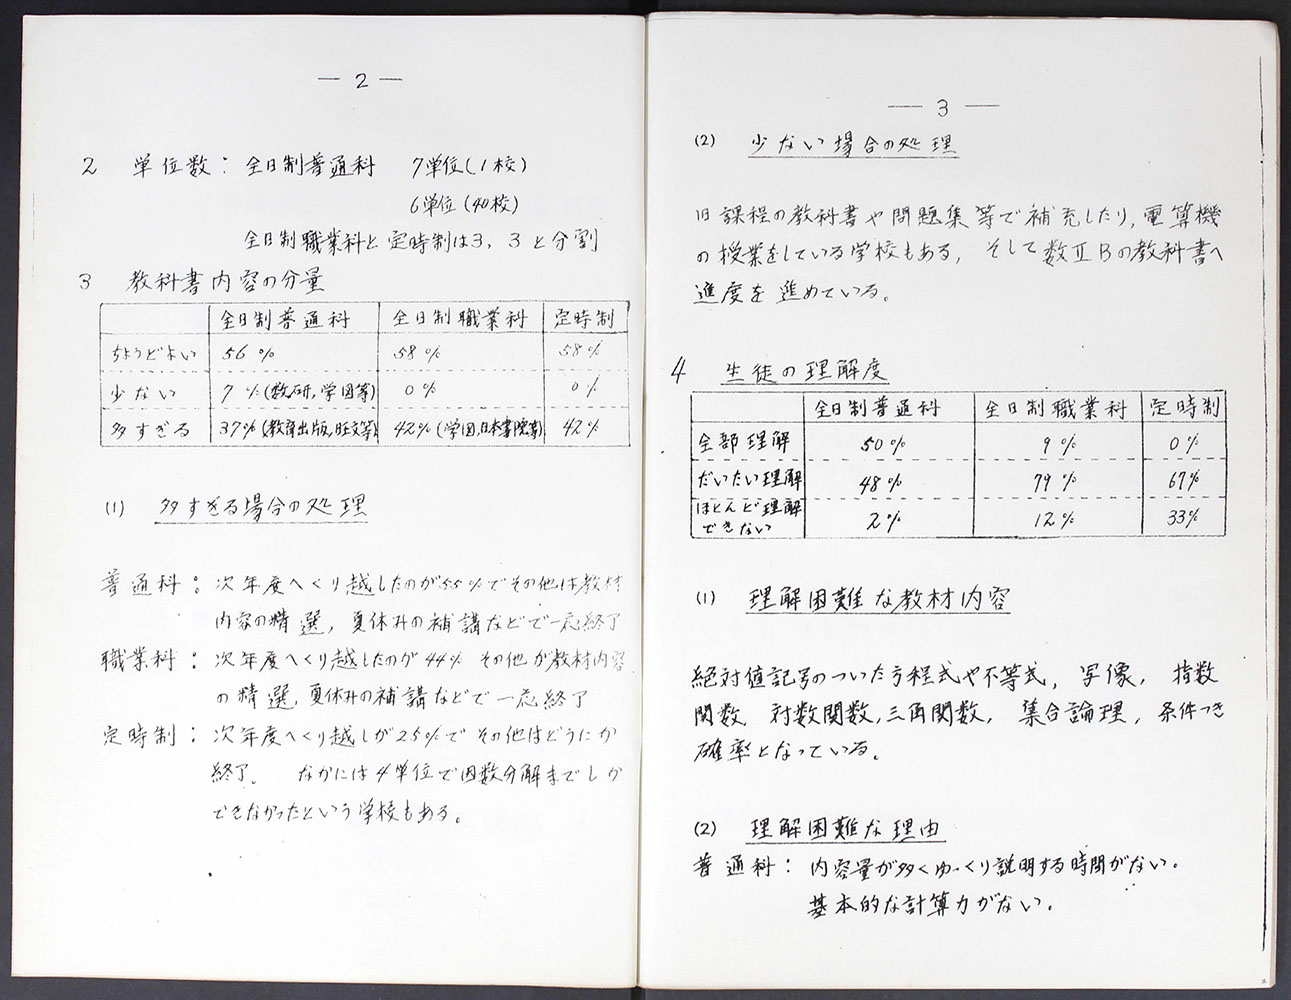 — 2 —
2 単位数: 全日制普通科 7単位(1校)
6単位(40校)
全日制職業科と定時制は3, 3と分割
3 教科書内容の分量
全日制普通科 全日制職業科 定時制
ちょうどよい 56% 58% 58%
少ない 7%(数研,学図等) 0% 0%
多すぎる 37%(教育出版,旺文等) 42%(学図,日本書院等) 42%
(1) 多すぎる場合の処理
普通科: 次年度へくり越したのが55%でその他は教材
内容の精選, 夏休みの補講などで一応終了
職業科: 次年度へくり越したのが44% その他が教材内容
の精選,夏休みの補講などで一応終了
定時制: 次年度へくり越しが25%でその他はどうにか
終了。 なかには4単位で因数分解までしか
できなかったという学校もある。
— 3 —
(2) 少ない場合の処理
旧課程の教科書や問題集等で補充したり,電算機
の授業をしている学校もある, そして数ⅡBの教科書へ
進度を進めている。
4 生徒の理解度
全日制普通科 全日制職業科 定時制
全部理解 50% 9% 0%
だいたい理解 48% 79% 67%
ほとんど理解
できない 2% 12% 33%
(1) 理解困難な教材内容
絶対値記号のついた方程式や不等式, 写像, 指数
関数, 対数関数,三角関数, 集合論理, 条件つき
確率となっている。
(2) 理解困難な理由
普通科: 内容量が多くゆっくり説明する時間がない。
基本的な計算力がない。